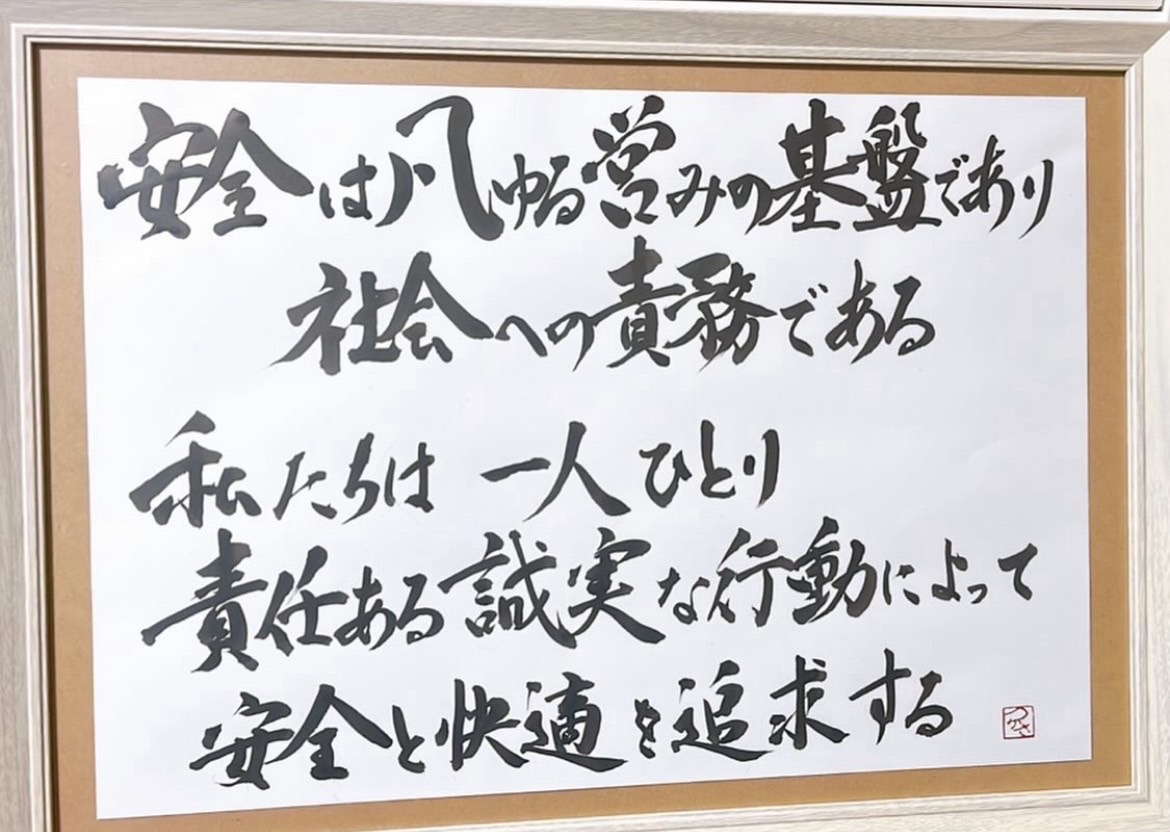 安全は凡ゆる営みの基盤であり
社会への責務である
私たちは 一人ひとり
責任ある誠実な行動によって
安全と快適を追求する